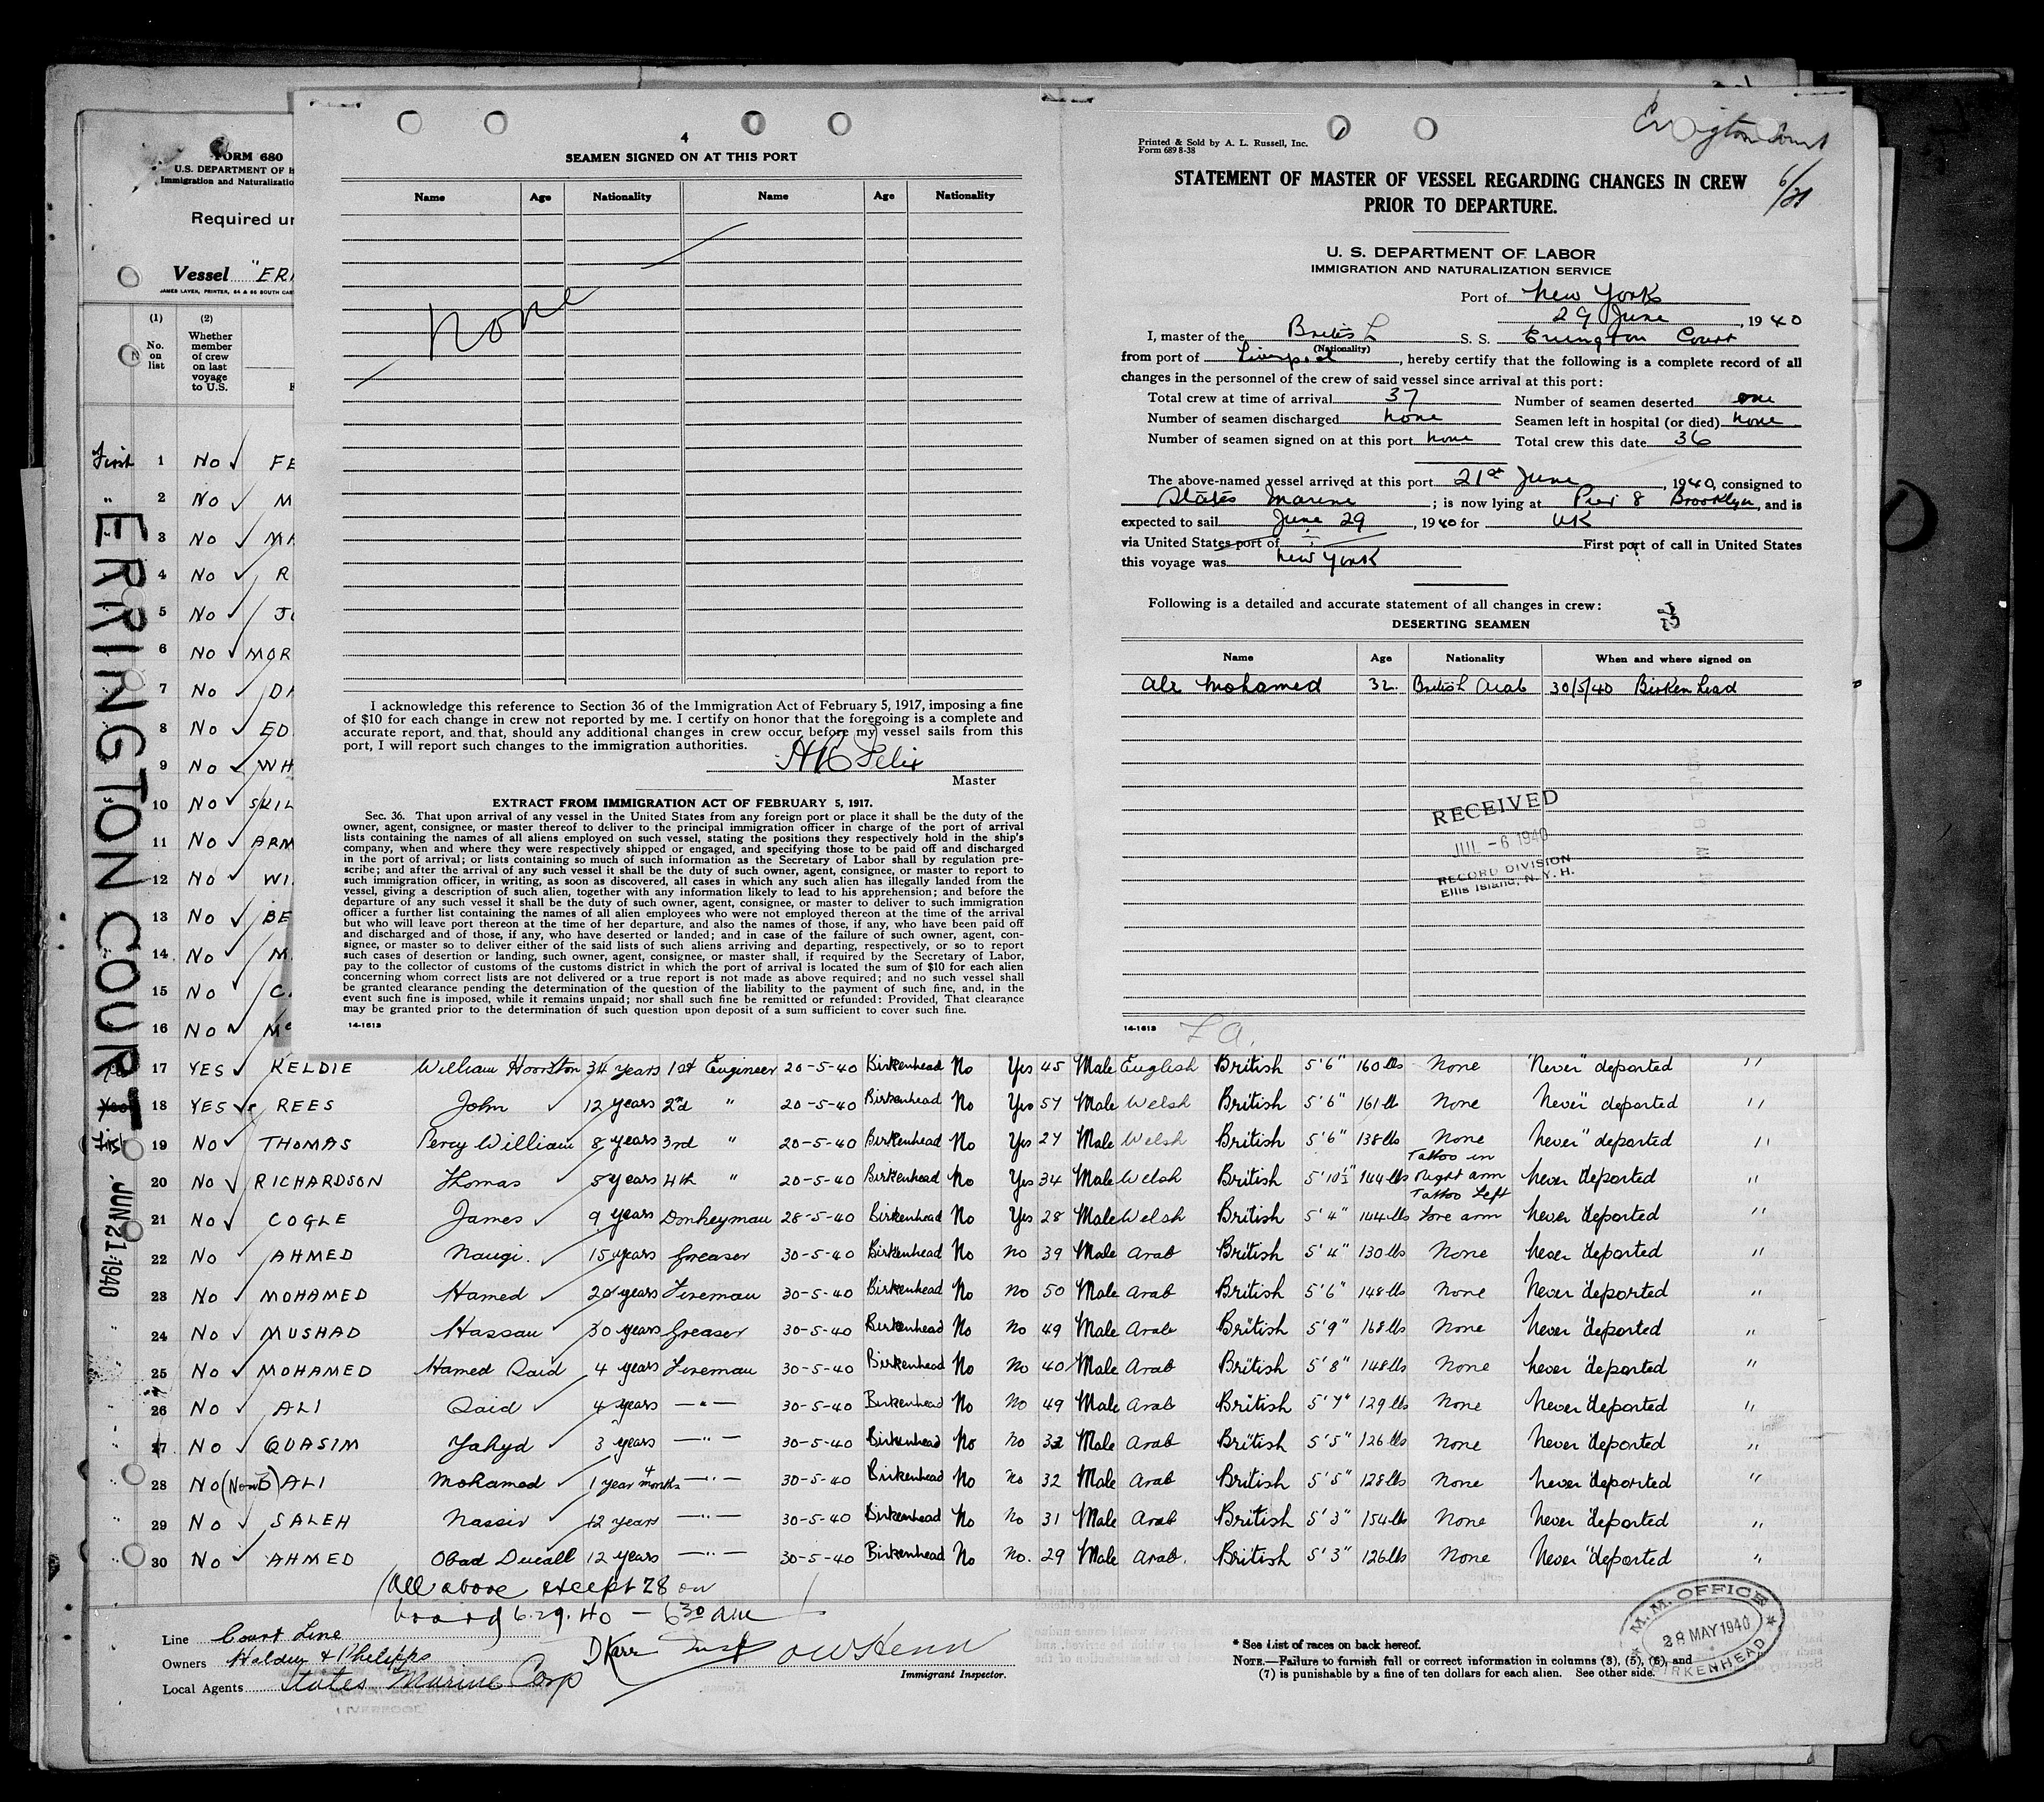 FORM 680
U.S. DEPARTMENT OF
Immigration and Naturalizatio
Required un
Vessel "ERR
JAMES LAVER, PRINTER, 64 & 66 SOUTH CAS
(1) (2)
No. on list
Whether member of crew on last voyage to U.S.
First 1 NO FE
" 2 NO M
3 NO MA
4 NO R
5 NO JO
6 NO MOR
7 NO DA
8 NO ED
9 NO WH
10 NO SKIL
11 NO ARM
12 NO WI
13 NO BE
14 NO M
15 NO C
16 NO Mc
ERRINGTON COURT
JUN 21 1940
4
SEAMEN SIGNED ON AT THIS PORT
Name Age Nationality Name Age Nationality
None
I acknowledge this reference to Section 36 of the Immigration Act of February 5, 1917, imposing a fine
of $10 for each change in crew not reported by me. I certify on honor that the foregoing is a complete and
accurate report, and that, should any additional changes in crew occur before my vessel sails from this
port, I will report such changes to the immigration authorities.
Felix
Master
EXTRACT FROM IMMIGRATION ACT OF FEBRUARY 5, 1917.
Sec. 36. That upon arrival of any vessel in the United States from any foreign port or place it shall be the duty of the
owner, agent, consignee, or master thereof to deliver to the principal immigration officer in charge of the port of arrival
lists containing the names of all aliens employed on such vessel, stating the positions they respectively hold in the ship's
company, when and where they were respectively shipped or engaged, and specifying those to be paid off and discharged
in the port of arrival; or lists containing so much of such information as the Secretary of Labor shall by regulation pre-
scribe; and after the arrival of any such vessel it shall be the duty of such owner, agent, consignee, or master to report to
such immigration officer, in writing, as soon as discovered, all cases in which any such alien has illegally landed from the
vessel, giving a description of such alien, together with any information likely to lead to his apprehension; and before the
departure of any such vessel it shall be the duty of such owner, agent, consignee, or master to deliver to such immigration
officer a further list containing the names of all alien employees who were not employed thereon at the time of the arrival
but who will leave port thereon at the time of her departure, and also the names of those, if any, who have been paid off
and discharged and of those, if any, who have deserted or landed; and in case of the failure of such owner, agent, con-
signee, or master so to deliver either of the said lists of such aliens arriving and departing, respectively, or so to report
such cases of desertion or landing, such owner, agent, consignee, or master shall, if required by the Secretary of Labor,
pay to the collector of customs of the customs district in which the port of arrival is located the sum of $10 for each alien
concerning whom correct lists are not delivered or a true report is not made as above required; and no such vessel shall
be granted clearance pending the determination of the question of the liability to the payment of such fine, and, in the
event such fine is imposed, while it remains unpaid; nor shall such fine be remitted or refunded: Provided, That clearance
may be granted prior to the determination of such question upon deposit of a sum sufficient to cover such fine.
14-1613
Printed & Sold by A. L. Russell, Inc.
Form 689 8-38
Errington Court
6/21
STATEMENT OF MASTER OF VESSEL REGARDING CHANGES IN CREW
PRIOR TO DEPARTURE.
U. S. DEPARTMENT OF LABOR
IMMIGRATION AND NATURALIZATION SERVICE
Port of New York
29 June, 1940
I, master of the British S. S. Errington Court
(Nationality)
from port of Liverpool, hereby certify that the following is a complete record of all
changes in the personnel of the crew of said vessel since arrival at this port:
Total crew at time of arrival 37 Number of seamen deserted one
Number of seamen discharged none Seamen left in hospital (or died) none
Number of seamen signed on at this port none Total crew this date 36
The above-named vessel arrived at this port 21st June, 1940, consigned to
States Marine; is now lying at Pier 8 Brooklyn, and is
expected to sail June 29, 1940 for UK
via United States port of First port of call in United States
this voyage was New York
Following is a detailed and accurate statement of all changes in crew:
DESERTING SEAMEN
Name Age Nationality When and where signed on
Ali Mohamed 32. British Arab 30/5/40 Birkenhead
RECEIVED
JUL -6 1940
RECORD DIVISION
Ellis Island, N. Y. H.
14-1613
17 YES KELDIE William Hoorston 34 years 1st Engineer 20-5-40 Birkenhead No Yes 45 Male English British 5'6" 160 lbs None Never deported "
18 YES REES John 12 years 2nd " 20-5-40 Birkenhead No Yes 57 Male Welsh British 5'6" 161 lb None never deported "
19 NO THOMAS Percy William 8 years 3rd " 20-5-40 Birkenhead No Yes 27 Male Welsh British 5'6" 138 lbs None never deported "
20 NO RICHARDSON Thomas 8 years 4th " 20-5-40 Birkenhead No Yes 34 Male Welsh British 5'10½" 144 lbs Tattoo in Right arm never deported "
21 NO COGLE James 9 years Donkeyman 28-5-40 Birkenhead No Yes 28 Male Welsh British 5'4" 144 lbs Tattoo Left fore arm never deported "
22 NO AHMED Naugi. 15 years Greaser 30-5-40 Birkenhead No No 39 Male Arab British 5'4" 130 lbs None never deported "
23 NO MOHAMED Hamed 20 years Fireman 30-5-40 Birkenhead No No 50 Male Arab British 5'6" 148 lbs None Never deported "
24 NO MUSHAD Hassan 30 years Greaser 30-5-40 Birkenhead No No 49 Male Arab British 5'9" 168 lbs None never deported "
25 NO MOHAMED Hamed Qaid 4 years Fireman 30-5-40 Birkenhead No No 40 Male Arab British 5'8" 148 lbs None never deported "
26 NO ALI Qaid 4 years —"— 30-5-40 Birkenhead No No 49 Male Arab British 5'7" 129 lbs None never deported "
27 NO QUASIM Yahyd 3 years —"— 30-5-40 Birkenhead No No 32 Male Arab British 5'5" 126 lbs None never deported "
28 NO ALI Mohamed 1 year 4 months —"— 30-5-40 Birkenhead No No 32 Male Arab British 5'5" 128 lbs None never deported "
29 NO SALEH Nassir 12 years —"— 30-5-40 Birkenhead No No 31 Male Arab British 5'3" 154 lbs None never deported "
30 NO AHMED Obad Ducall 12 years —"— 30-5-40 Birkenhead No No. 29 Male Arab. British 5'3" 126 lbs None Never deported "
(All above except 28 on
board 6.29.40 — 6 30 am
Line Court Line
Owners Haldin & Philipps
Local Agents States Marine Corp
Immigrant Inspector.
* See List of races on back hereof.
NOTE.—Failure to furnish full or correct information in columns (3), (5), (6), and
(7) is punishable by a fine of ten dollars for each alien. See other side.
M. M. OFFICE
28 MAY 1940
BIRKENHEAD